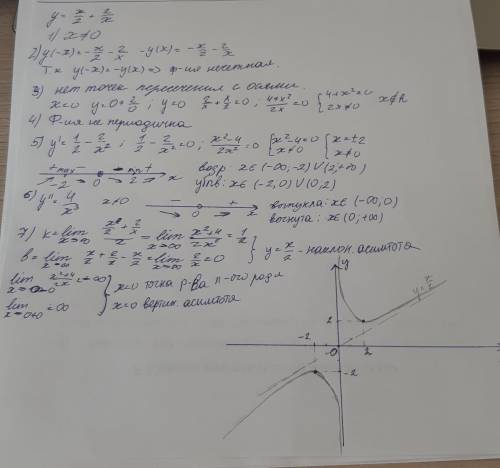 y = x/2 + 2/x
1) x≠0
2) y(-x) = -x/2 - 2/x -y(x) = -x/2 - 2/x
Т.к y(-x) = -y(x) => ф-ия нечетная.
3) нет точек пересечения с осями.
x=0 y=0+2/0 ; y=0 2/x + x/2 = 0 ; (4+x²)/2x = 0 { 4+x²=0 2x≠0 x∉R
4) Ф-ия не периодична
5) y' = 1/2 - 2/x² ; 1/2 - 2/x² = 0 ; (x²-4)/2x² = 0 { x²-4=0 x≠0 { x=±2 x≠0
+ max - - min + x
-2 0 2
возр: x∈(-∞,-2)∪(2;+∞)
убыв: x∈(-2,0)∪(0,2)
6) y'' = 4/x³ x≠0 - 0 + x
выпукла: x∈(-∞,0)
вогнута: x∈(0;+∞)
7) k = lim x→∞ (x/2 + 2/x)/x = lim x→∞ (x²+4)/2x² = 1/2
b = lim x→∞ x/2 + 2/x - x/2 = lim x→∞ 2/x = 0 } y = x/2 - наклон. асимптота
lim x→0-0 (x²+4)/2x = -∞ } x=0 точка р-ва II-ого рода
lim x→0+0 = ∞ x=0 вертик. асимптота
y
y = x/2
2
-2 -0 2
-2